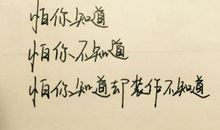 怕你知道
怕你不知道
怕你知道却装作不知道